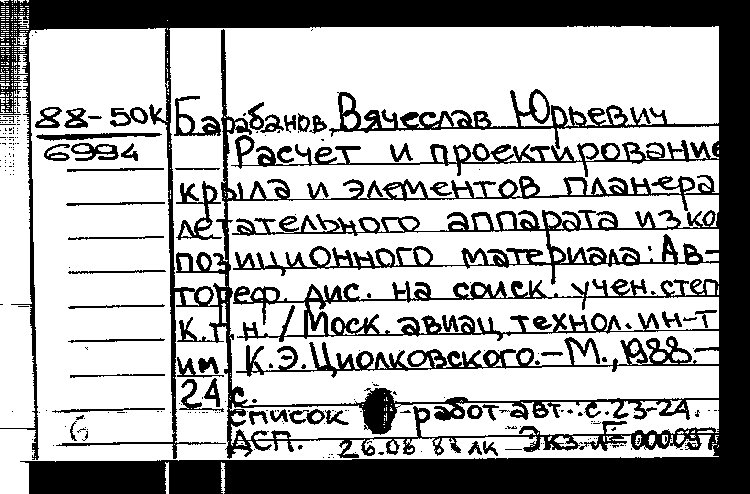 88-50К Барабанов, Вячеслав Юрьевич
6994 Расчет и проектирование
крыла и элементов планера
летательного аппарата из ко
позиционного материала: Ав-
тореф. дис. на соиск. учен. степ
к.т.н. / Моск. авиац. технол. ин-т
им. К.Э.Циолковского.-М., 1988.-
24 с.
список работ авт.: с.23-24.
6 ДСП. 26.08.88 ЛК Экз. № 000097